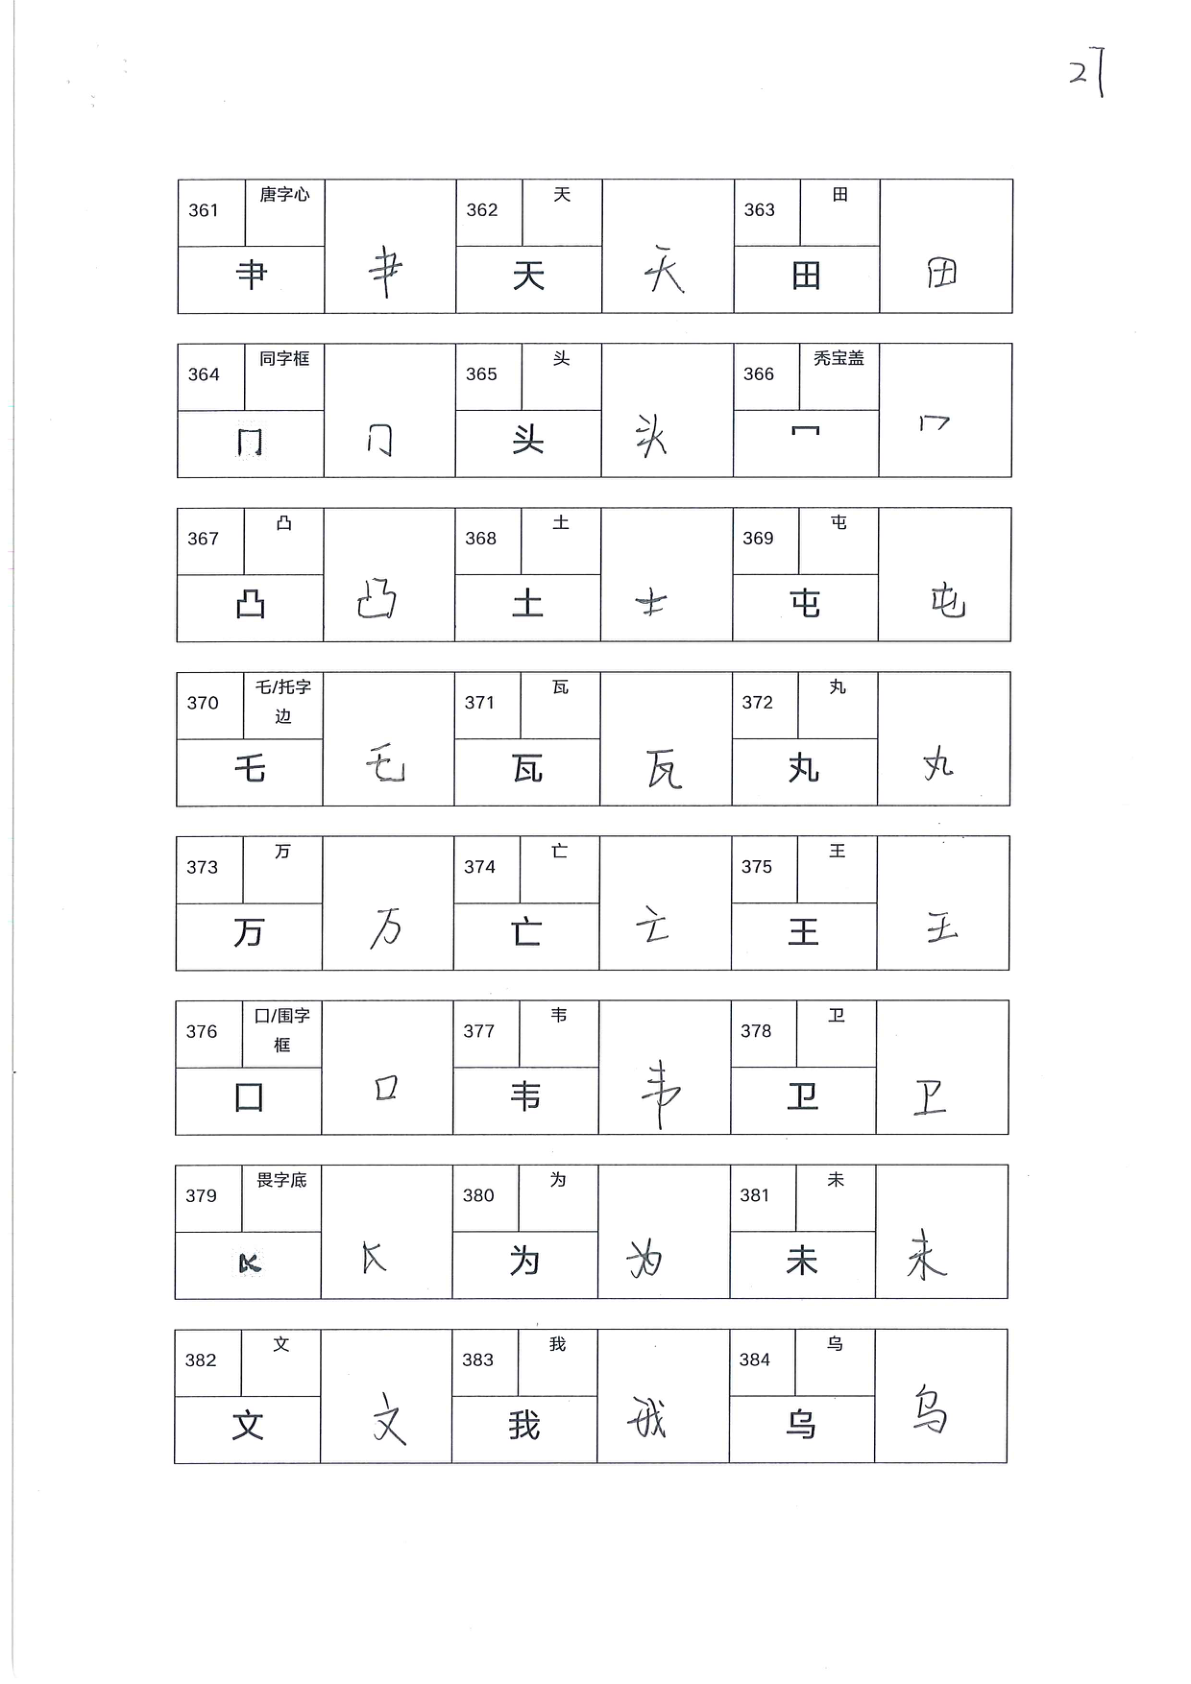 27
361 唐字心 362 天 363 田
肀 肀 天 天 田 田
364 同字框 365 头 366 秃宝盖
冂 冂 头 头 冖 冖
367 凸 368 土 369 屯
凸 凸 土 土 屯 屯
370 乇/托字边 371 瓦 372 丸
乇 乇 瓦 瓦 丸 丸
373 万 374 亡 375 王
万 万 亡 亡 王 王
376 囗/围字框 377 韦 378 卫
囗 囗 韦 韦 卫 卫
379 畏字底 380 为 381 未
为 为 未 未
382 文 383 我 384 乌
文 文 我 我 乌 乌